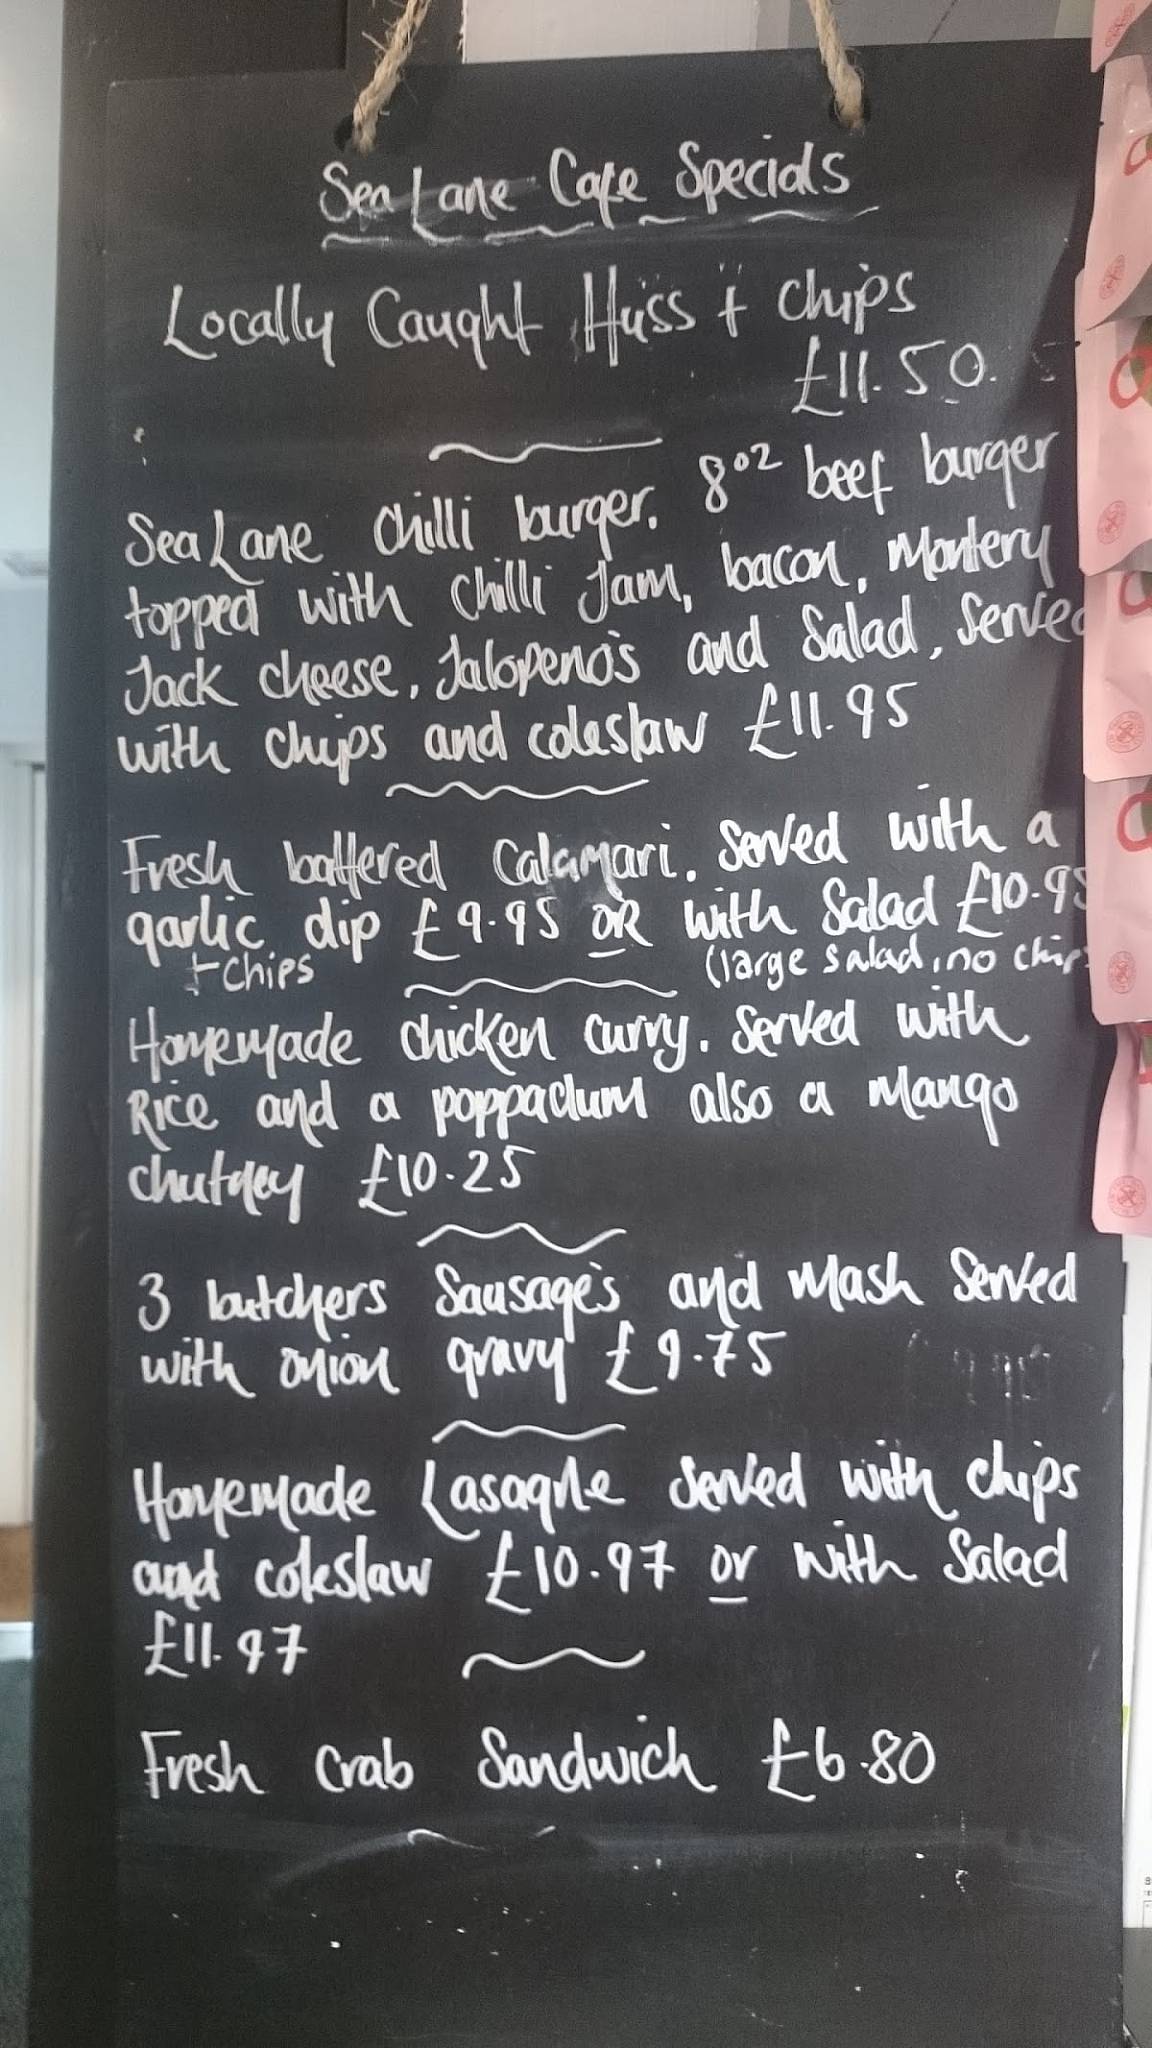 Sea Lane Cafe Specials
Locally Caught Huss + chips
£11.50.
Sea Lane chilli burger. 8oz beef burger
topped with chilli Jam, bacon, Montery
Jack cheese, Jalopeno's and Salad, served
with chips and coleslaw £11.95
Fresh battered Calamari. Served with a
garlic dip £9.95 OR with Salad £10.95
+ chips (large salad, no chips
Homemade chicken curry. Served with
Rice and a poppadum also a Mango
chutney £10.25
3 butchers Sausage's and Mash Served
with onion gravy £9.75
Homemade Lasagne Served with chips
and coleslaw £10.97 or with Salad
£11.97
Fresh Crab Sandwich £6.80